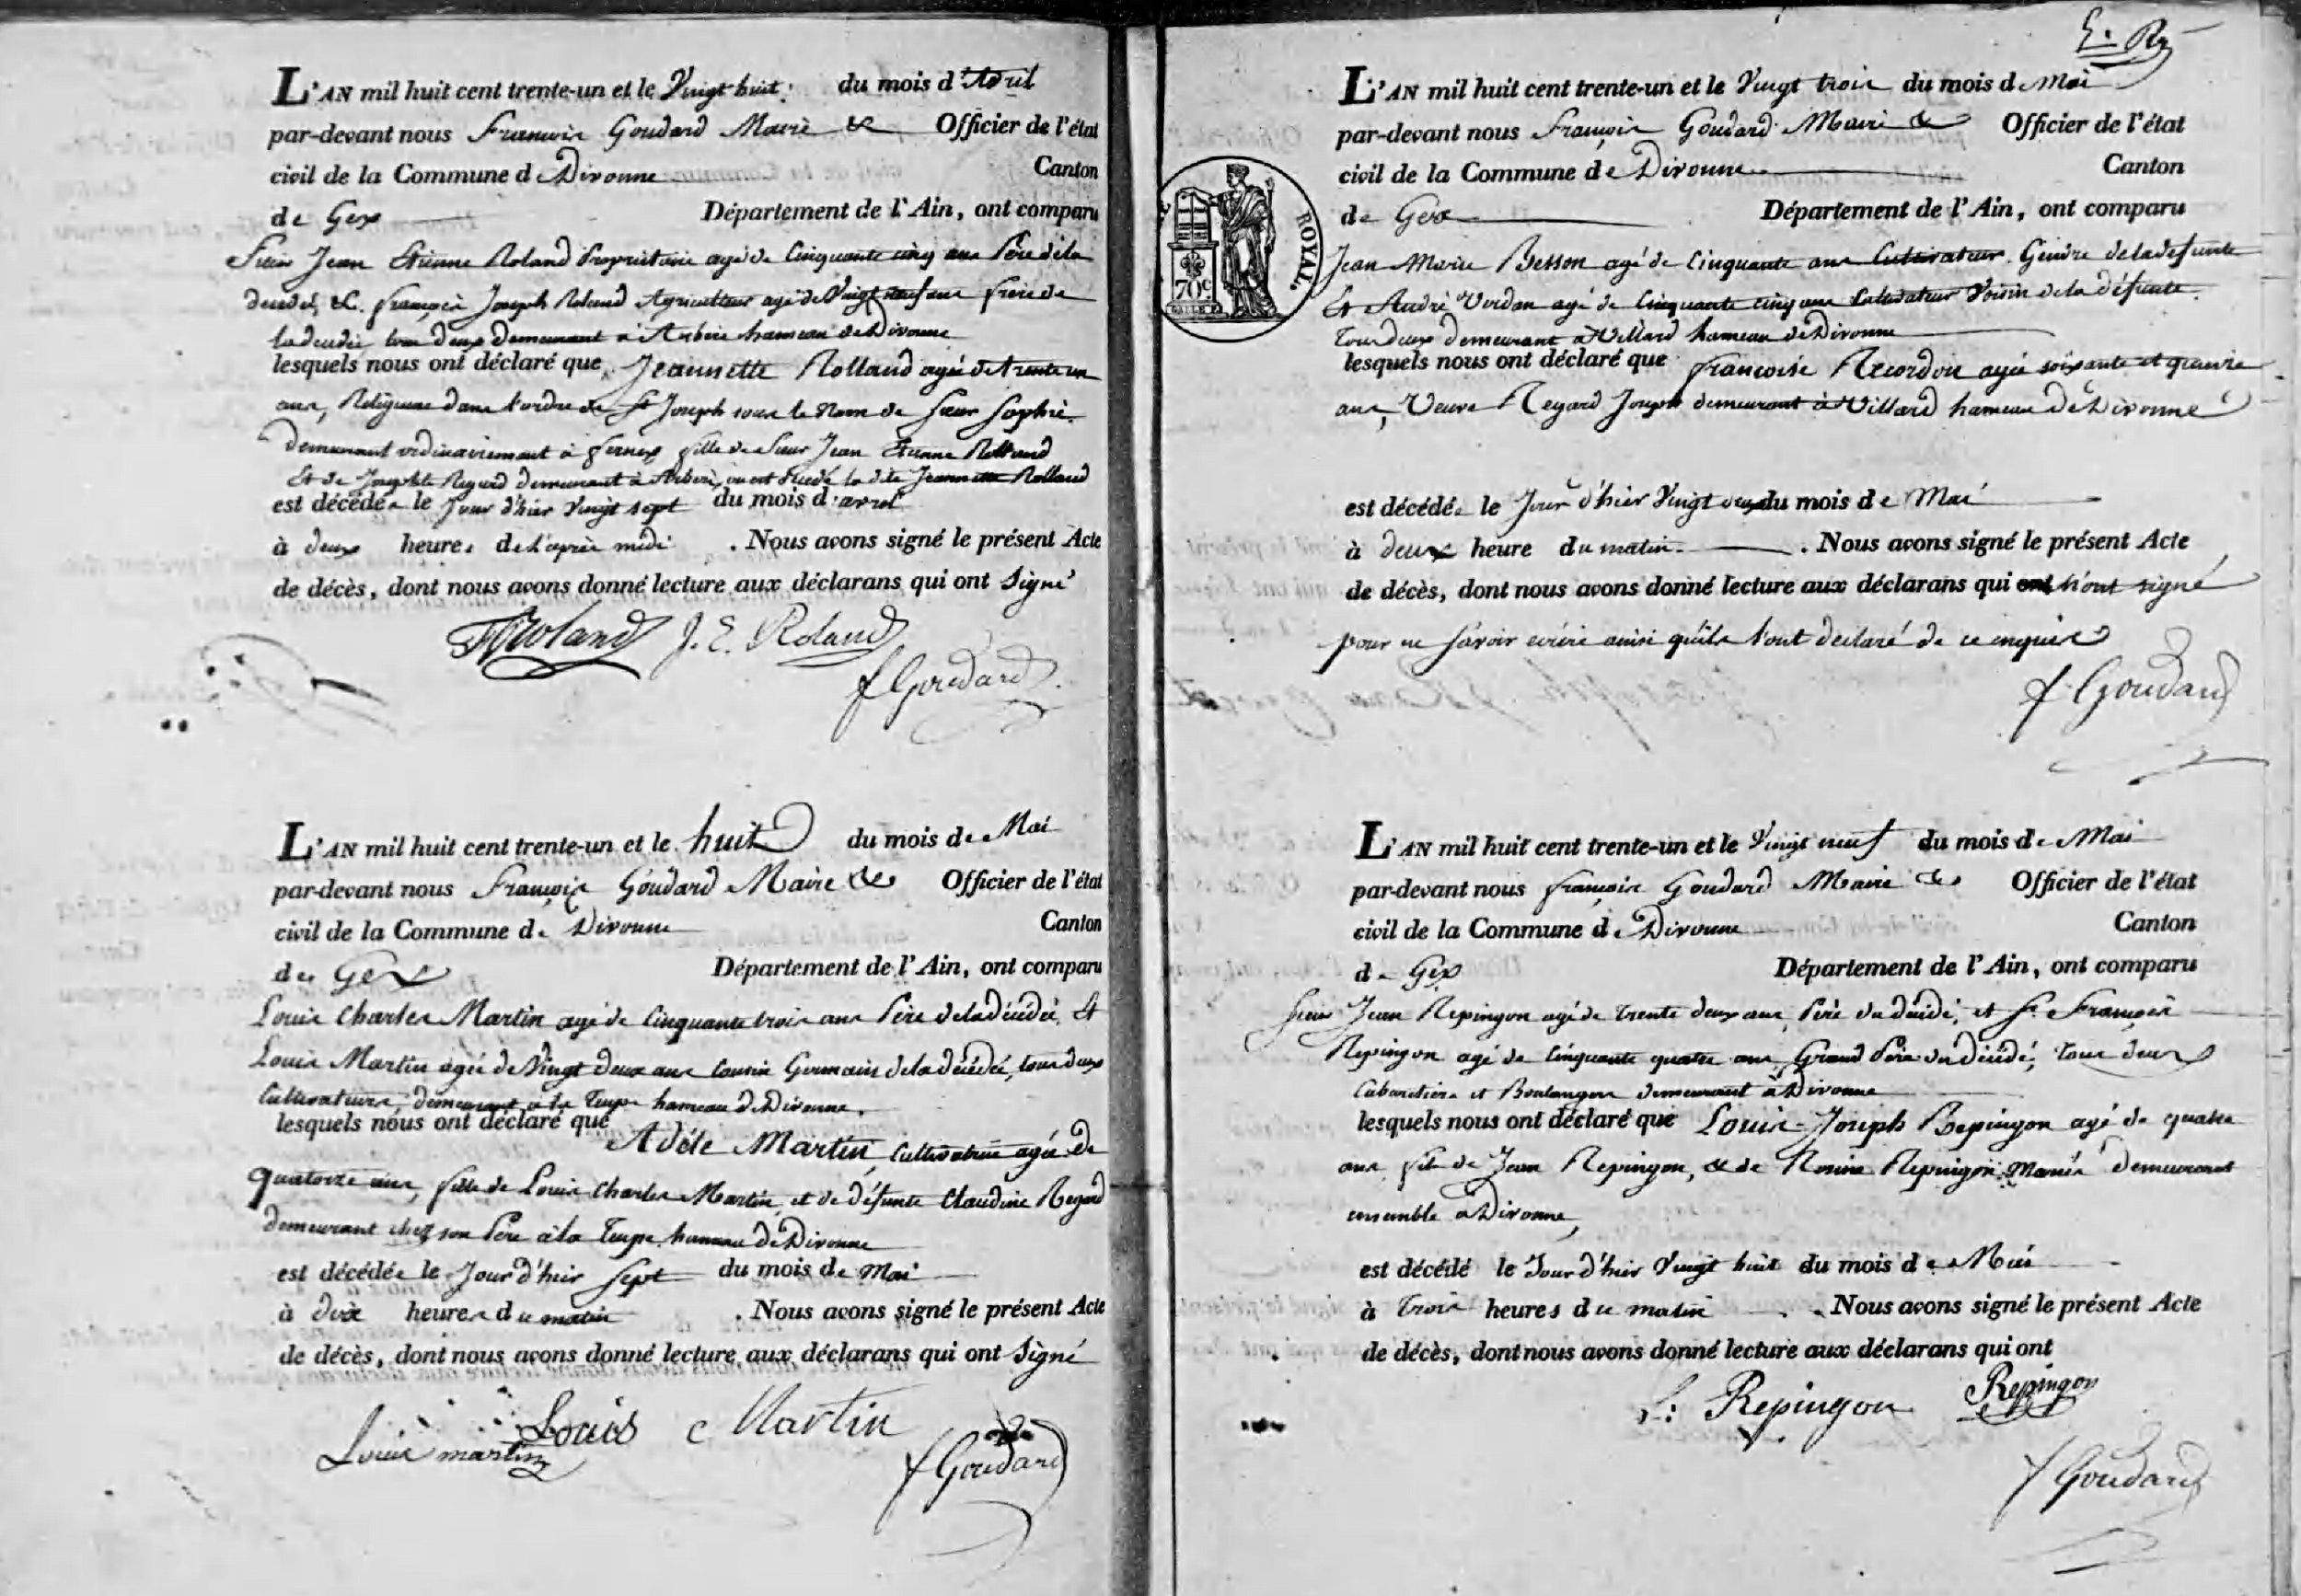 L'AN mil huit cent trente-un et le Vingt huit du mois d'Avril
par-devant nous François Goudard Maire & Officier de l'état
civil de la Commune de Divonne Canton
de Gex Département de l'Ain, ont comparu
Sieur Jean Etienne Roland Proprietaire agé de Cinquante cinq ans Père de la
décédée, &. françois Joseph Roland Agriculteur agé de Vingt neuf ans frère de
la décédée tous deux demeurant à Arbère hameau de Divonne
lesquels nous ont déclaré que Jeannette Rolland agée de trente un
ans, Religieuse dans l'ordre de St Joseph sous le Nom de Sœur Sophie
demeurant ordinairement à ferney fille de Sieur Jean Etienne Rolland
Et de Josephte Regard demeurant à Arbère, ou est décédé la dite Jeannette Rolland
est décédée le Jour d'hier Vingt sept du mois d'avril
à deux heures de l'après midi . Nous avons signé le présent Acte
de décès, dont nous avons donné lecture aux déclarans qui ont Signé
Roland J. E. Roland
f Goudard
L'AN mil huit cent trente-un et le huit du mois de Mai
par-devant nous François Goudard Maire & Officier de l'état
civil de la Commune de Divonne Canton
de Gex Département de l'Ain, ont comparu
Louis Charles Martin agé de Cinquante trois ans Père de la décédée, Et
Louis Martin agée de Vingt deux ans Cousin Germain de la décédée, tous deux
Cultivateurs, demeurant à la Turpe hameau de Divonne.
lesquels nous ont déclaré que Adéle Martin, Cultivatrice agée de
quatorze ans, fille de Louis Charles Martin et de défunte Claudine Regard
demeurant chez son Père à la Turpe hameau de Divonne
est décédée le Jour d'hier Sept du mois de Mai
à dix heures du matin . Nous avons signé le présent Acte
de décès, dont nous avons donné lecture aux déclarans qui ont Signé
Louis c Martin
Louis martin
f Goudard
L'AN mil huit cent trente-un et le Vingt trois du mois de Mai
par-devant nous François Goudard Maire & Officier de l'état
civil de la Commune de Divonne Canton
de Gex Département de l'Ain, ont comparu
ROYAL
70c
Jean Marie Besson agé de Cinquante ans Cultivateur Gendre de la defunte
Et André Verdan agé de Cinquante cinq ans Cultivateur Voisin de la défunte.
Tous deux demeurant à Villard hameau de Divonne
lesquels nous ont déclaré que francoise Recordon agée soixante et quinze
ans, Veuve Regard Joseph demeurant à Villard hameau de Divonne
est décédée le Jour d'hier Vingt deux du mois de Mai
à deux heure du matin . Nous avons signé le présent Acte
de décès, dont nous avons donné lecture aux déclarans qui ont n'ont signé
pour ne savoir écrire ainsi qu'ils l'ont déclaré de ce enquis
f. Goudard
L'AN mil huit cent trente-un et le Vingt neuf du mois de Mai
par-devant nous françois Goudard Maire & Officier de l'état
civil de la Commune de Divonne Canton
de Gex Département de l'Ain, ont comparu
Sieur Jean Repingon agé de trente deux ans, Père du décédé, et Sr. François
Repingon agé de Cinquante quatre ans Grand Père du décédé, tous deux
Cabaretiers et Boulangers demeurant à Divonne
lesquels nous ont déclaré que Louis-Joseph Repingon agé de quatre
ans fils de Jean Repingon, & de Repingon Mariés demeurant
ensemble à Divonne,
est décédé le Jour d'hier Vingt huit du mois de Mai
à Trois heures du matin . Nous avons signé le présent Acte
de décès, dont nous avons donné lecture aux déclarans qui ont
Repingon Repingon
f Goudard